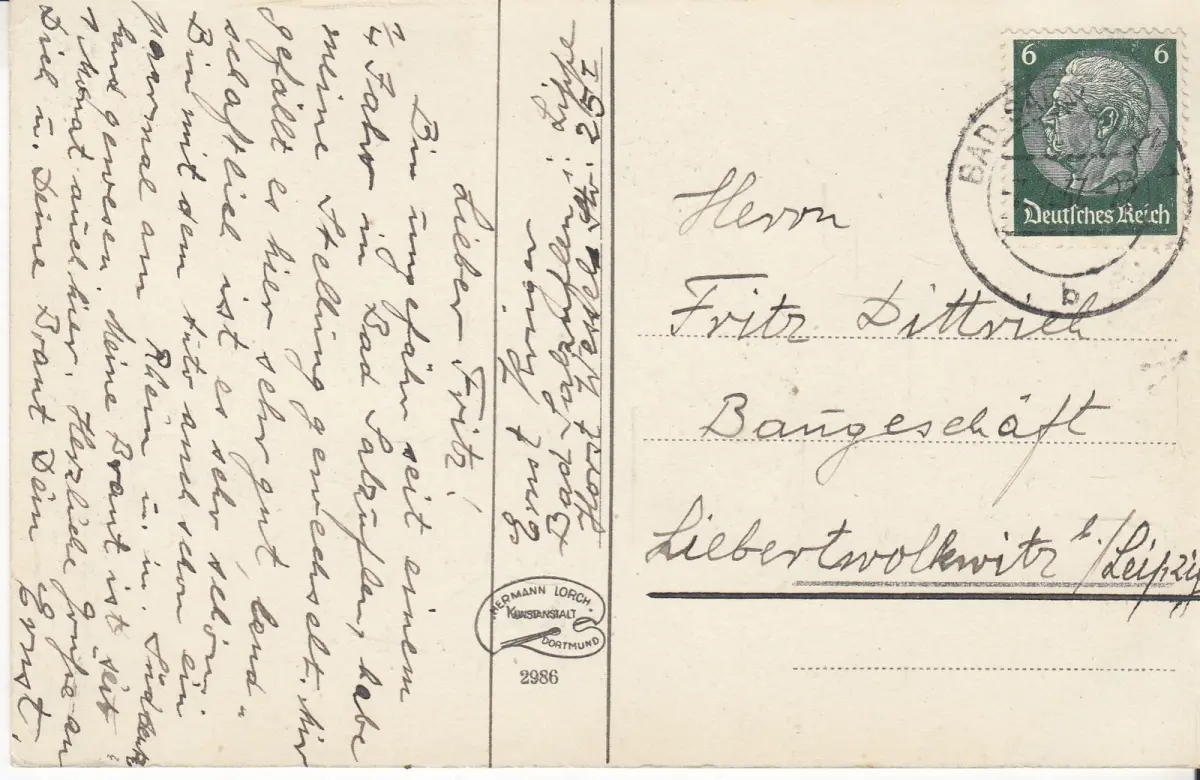 Lieber Fritz!
Bin ungefähr seit einem
¾ Jahr in Bad Salzuflen, habe
meine Stellung gewechselt. Mir
gefällt es hier sehr gut, land-
schaftlich ist es sehr schön.
Bin mit dem Auto auch schon ein
paarmal am Rhein u. in Süddeutsch-
land gewesen. Meine Braut ist seit
1 Monat auch hier. Herzliche Grüße an
Dich u. Deine Braut Dein Ernst.
Ernst
Bad Salzuflen i. Lippe
Horst Wessel Str. 25
HERMANN LORCH.
KUNSTANSTALT
DORTMUND
2986
6 6
Deutsches Reich
BAD
b
Herrn
Fritz Dittrich
Baugeschäft
Liebertwolkwitz b./Leipzig